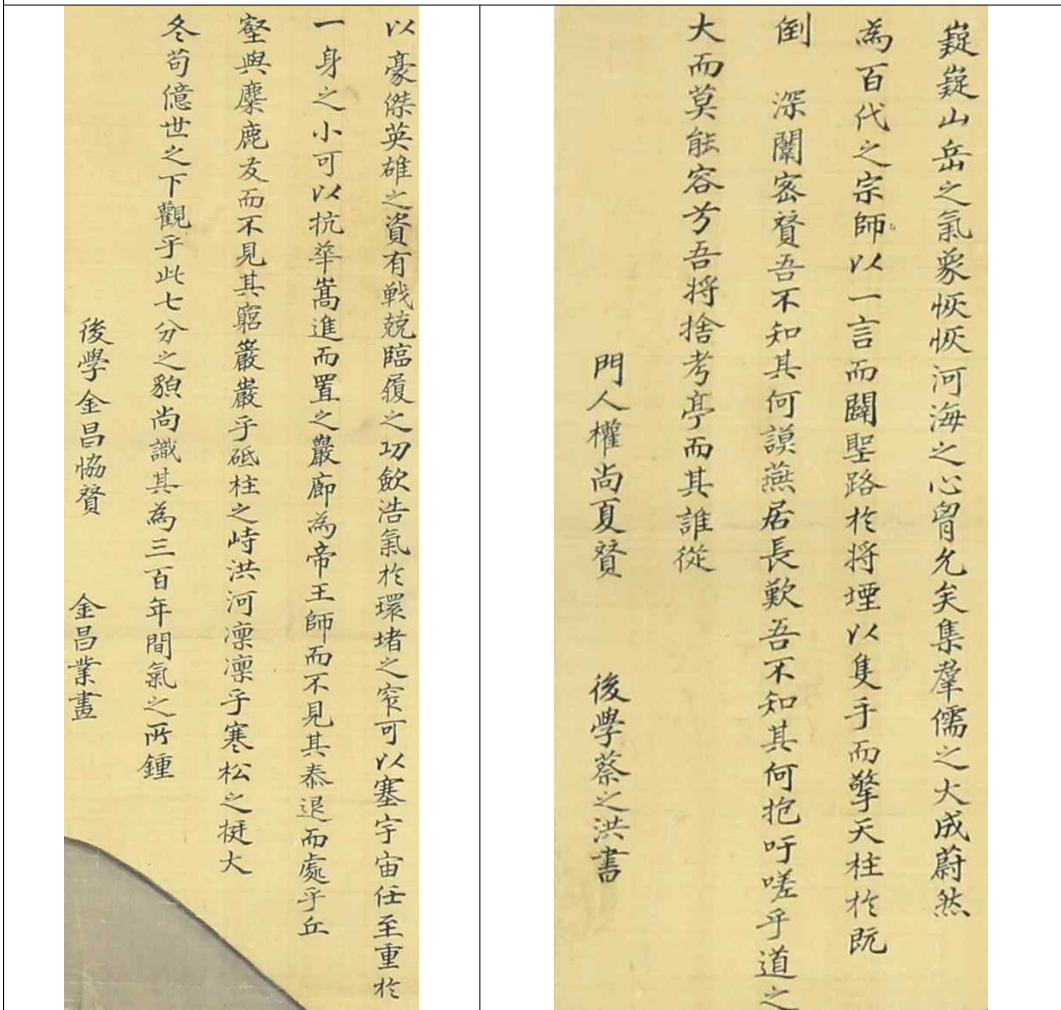 嶷嶷山岳之氣象恢恢河海之心胷允矣集羣儒之大成蔚然
為百代之宗師以一言而闢聖路於將堙以隻手而擎天柱於既
倒 深闈密贊吾不知其何謨燕居長歎吾不知其何抱吁嗟乎道之
大而莫能容兮吾將捨考亭而其誰從
門人權尚夏贊 後學蔡之洪書
以豪傑英雄之資有戰兢臨履之功斂浩氣於環堵之窄可以塞宇宙任至重於
一身之小可以抗華嵩進而置之巖廊為帝王師而不見其泰退而處乎丘
壑與麋鹿友而不見其窮巖巖乎砥柱之峙洪河凜凜乎寒松之挺大
冬苟億世之下觀乎此七分之貌尚識其為三百年間氣之所鍾
後學金昌協贊 金昌業畫